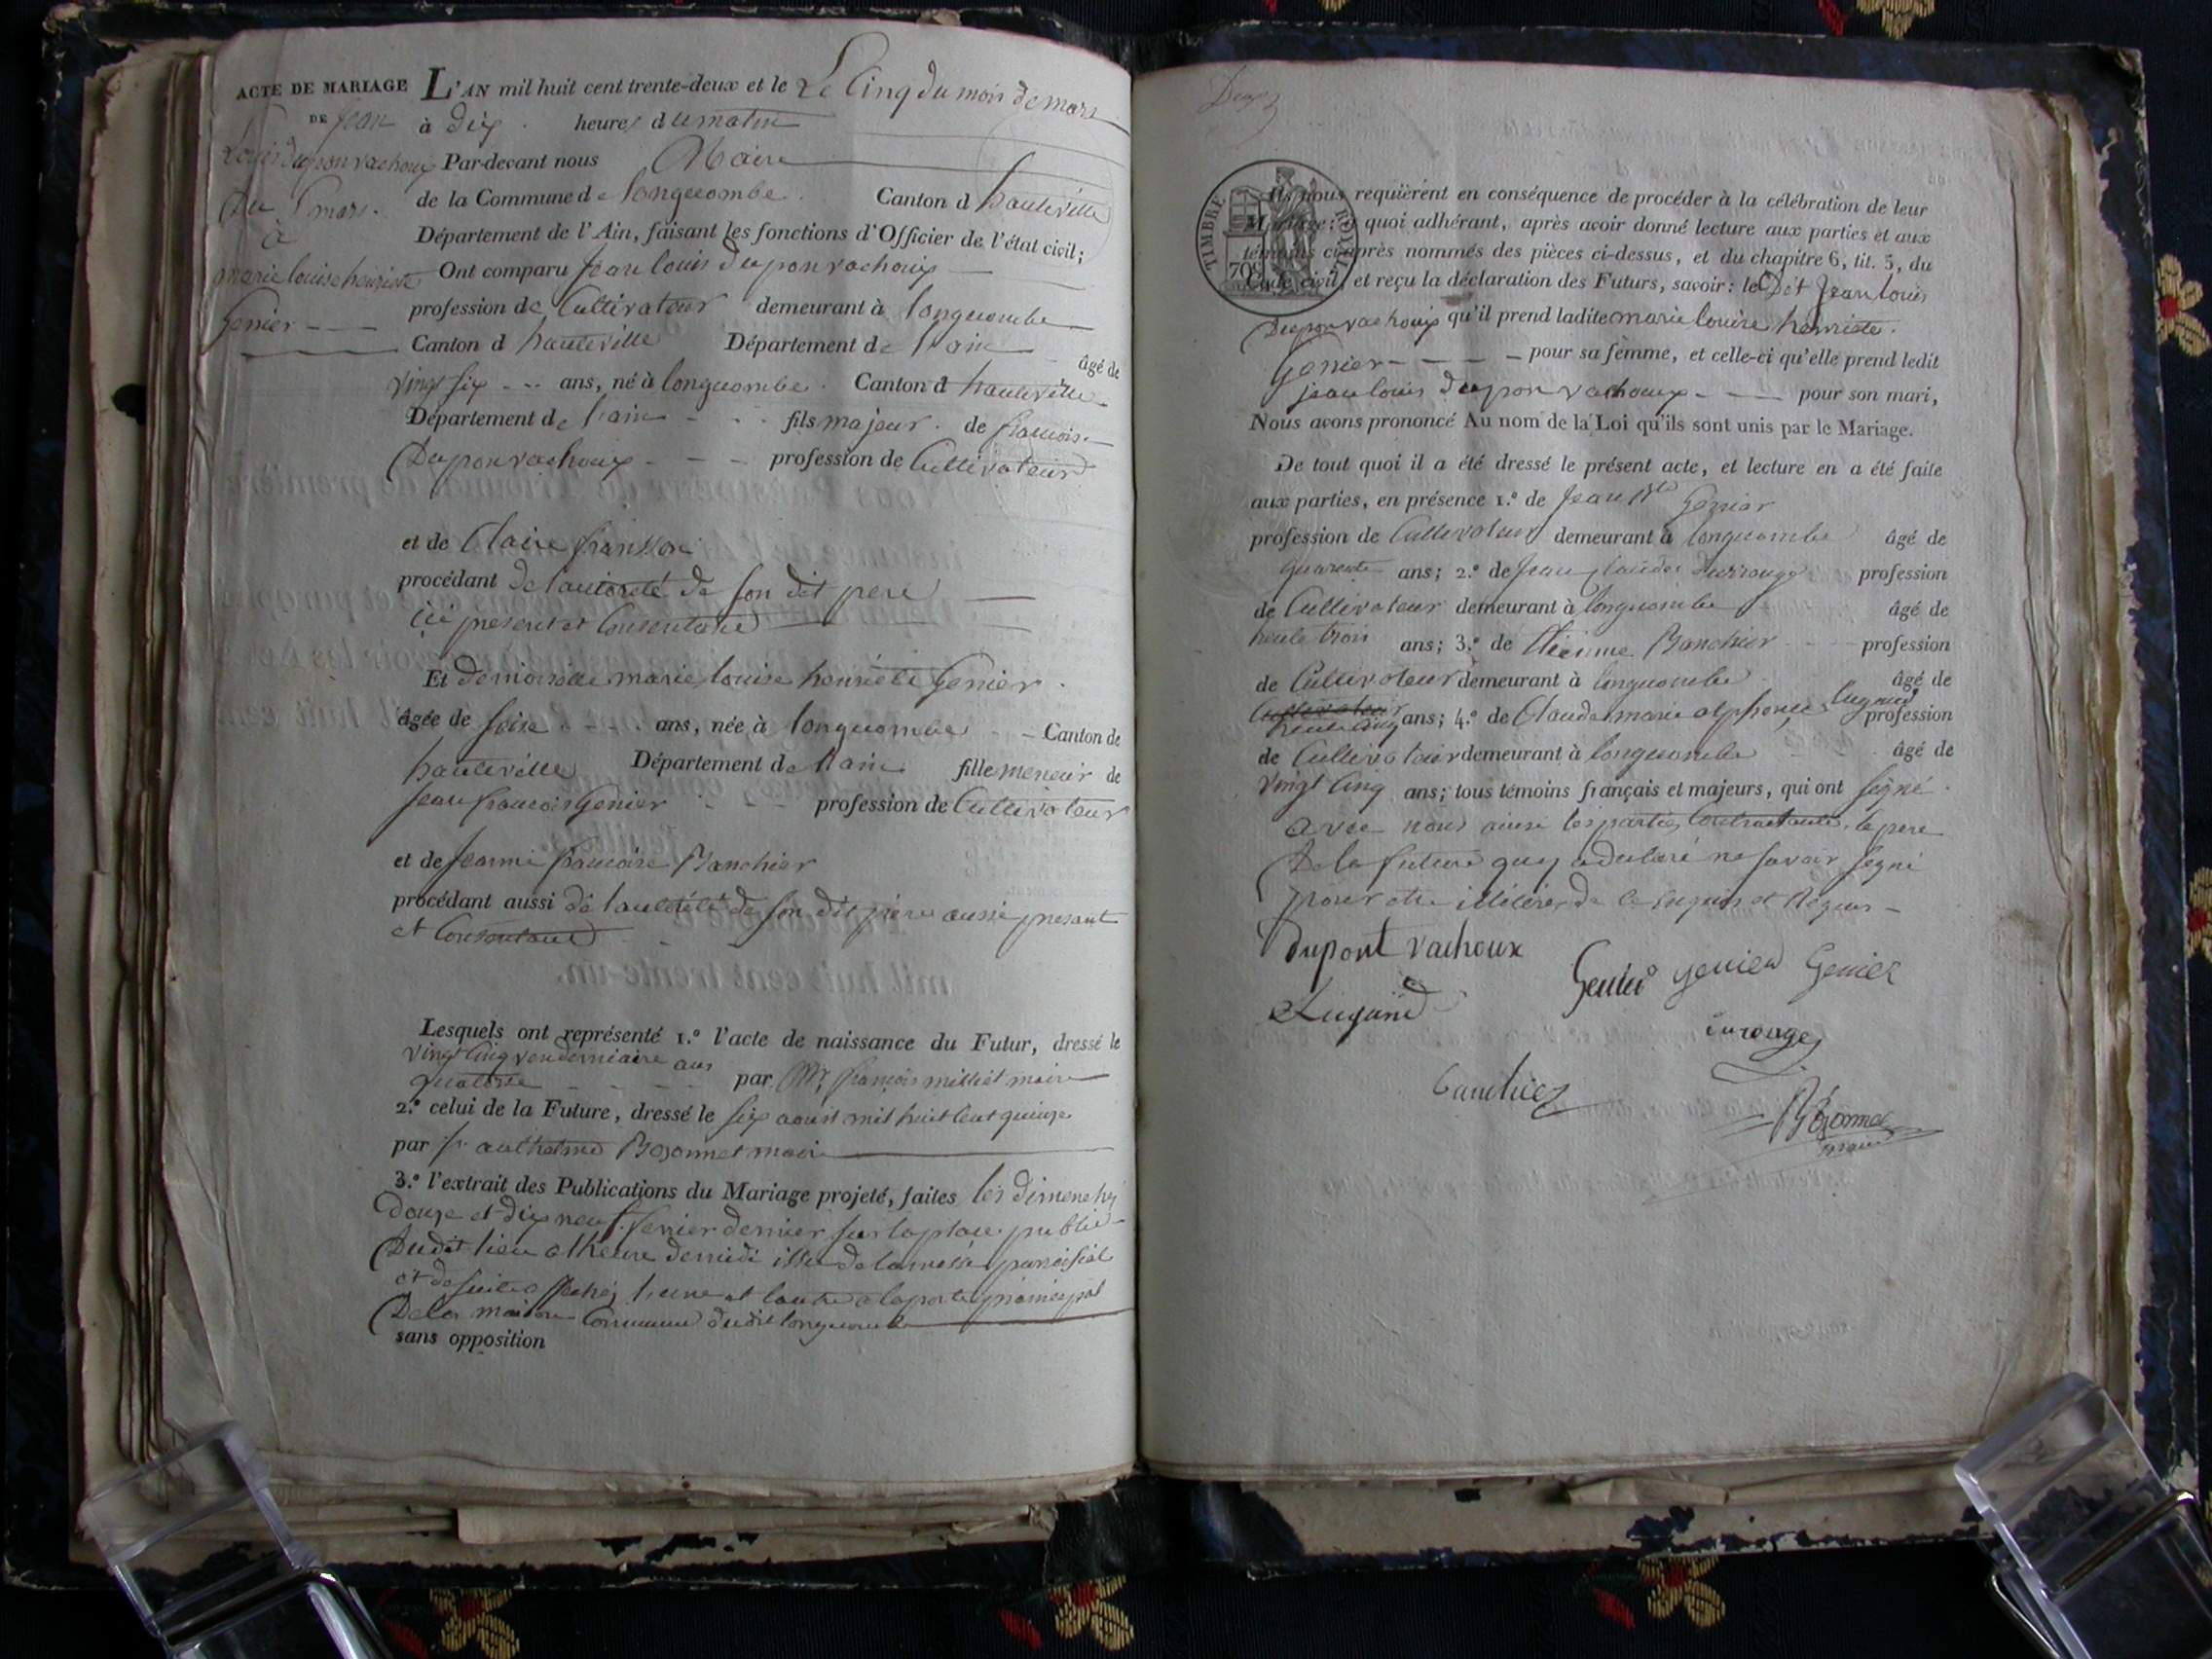 ACTE DE MARIAGE L'AN mil huit cent trente-deux et le Le Cinq du mois de mars
DE Jean à dix heures du matin
Louis duponvachoux Par-devant nous Maire
Du 5 mars de la Commune de longecombe Canton d hauteville
à Département de l'Ain, faisant les fonctions d'Officier de l'état civil;
marie louise henriete Ont comparu Jean louis duponvachoux
Genier profession de Cultivateur demeurant à longecombe
Canton d hauteville Département de l'ain âgé de
vingt six ans, né à longecombe Canton d hauteville
Département de l'ain fils majeur de francois
Duponvachoux profession de Cultivateur
et de Claire
procédant de l'autorité de son dit pere
ici present et Consentant
Et demoiselle marie louise henriete Genier
âgée de seise ans, née à longecombe Canton de
hauteville Département de l'ain fille meneur de
Jean francois Genier profession de Cultivateur
et de Jeanne francoise Banchier
procédant aussi de l'autorité de son dit père aussi present
et Consentant
Lesquels ont représenté 1.º l'acte de naissance du Futur, dressé le
vingt cinq vendemiaire an
quatorse par Mr. francois milliet maire
2.º celui de la Future, dressé le six aoust mil huit cent quinze
par anthelme Bozonnet maire
3.º l'extrait des Publications du Mariage projeté, faites les dimenches
douze et dix neuf fevrier dernier sur la place public
Dudit lieu a lheure de midi issue de la messe paroisial
et de suite affichés l'une et lautre a la porte principal
De la maison Commune dudit longecombe
sans opposition
Deux
TIMBRE ROYAL
70c
Ils nous requièrent en conséquence de procéder à la célébration de leur
Mariage: à quoi adhérant, après avoir donné lecture aux parties et aux
témoins ci-après nommés des pièces ci-dessus, et du chapitre 6, tit. 5, du
Code civil, et reçu la déclaration des Futurs, savoir: le Dit Jean louis
Duponvachoux qu'il prend ladite marie louise henriete
Genier pour sa femme, et celle-ci qu'elle prend ledit
jean louis duponvachoux pour son mari,
Nous avons prononcé Au nom de la Loi qu'ils sont unis par le Mariage.
De tout quoi il a été dressé le présent acte, et lecture en a été faite
aux parties, en présence 1.º de Jean Bte Genier
profession de Cultivateur demeurant à longecombe âgé de
quarente ans; 2.º de Jean Claude Durrouge profession
de Cultivateur demeurant à longecombe âgé de
trente trois ans; 3.º de Etienne Banchier profession
de Cultivateur demeurant à longecombe âgé de
trente cinq ans; 4.º de Claude marie alphonse Lugand profession
de Cultivateur demeurant à longecombe âgé de
vingt cinq ans; tous témoins français et majeurs, qui ont signé
avec nous ainsi les parties Contractante, le pere
De la future quy a declaré ne savoir signé
pour etre illetéré, de ce enquis et requis
Dupont Vachoux Genier genier Genier
Lugand
durouge
banchiez
Bozonnet
maire